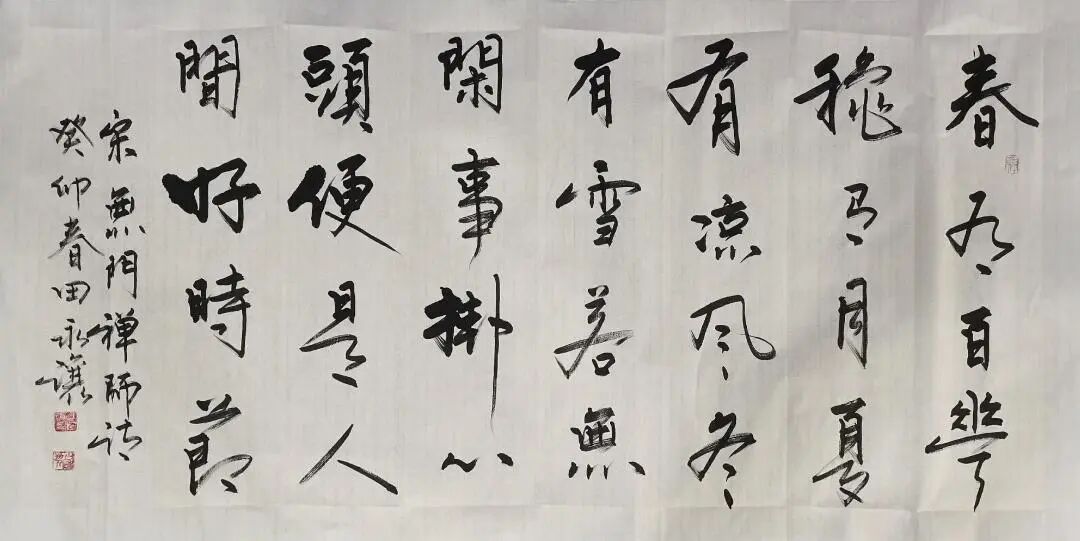 春有百花
秋有月夏
有凉风冬
有雪若無
閑事掛心
頭便是人
間好時節
宋無門禅師詩
癸卯春田永讓